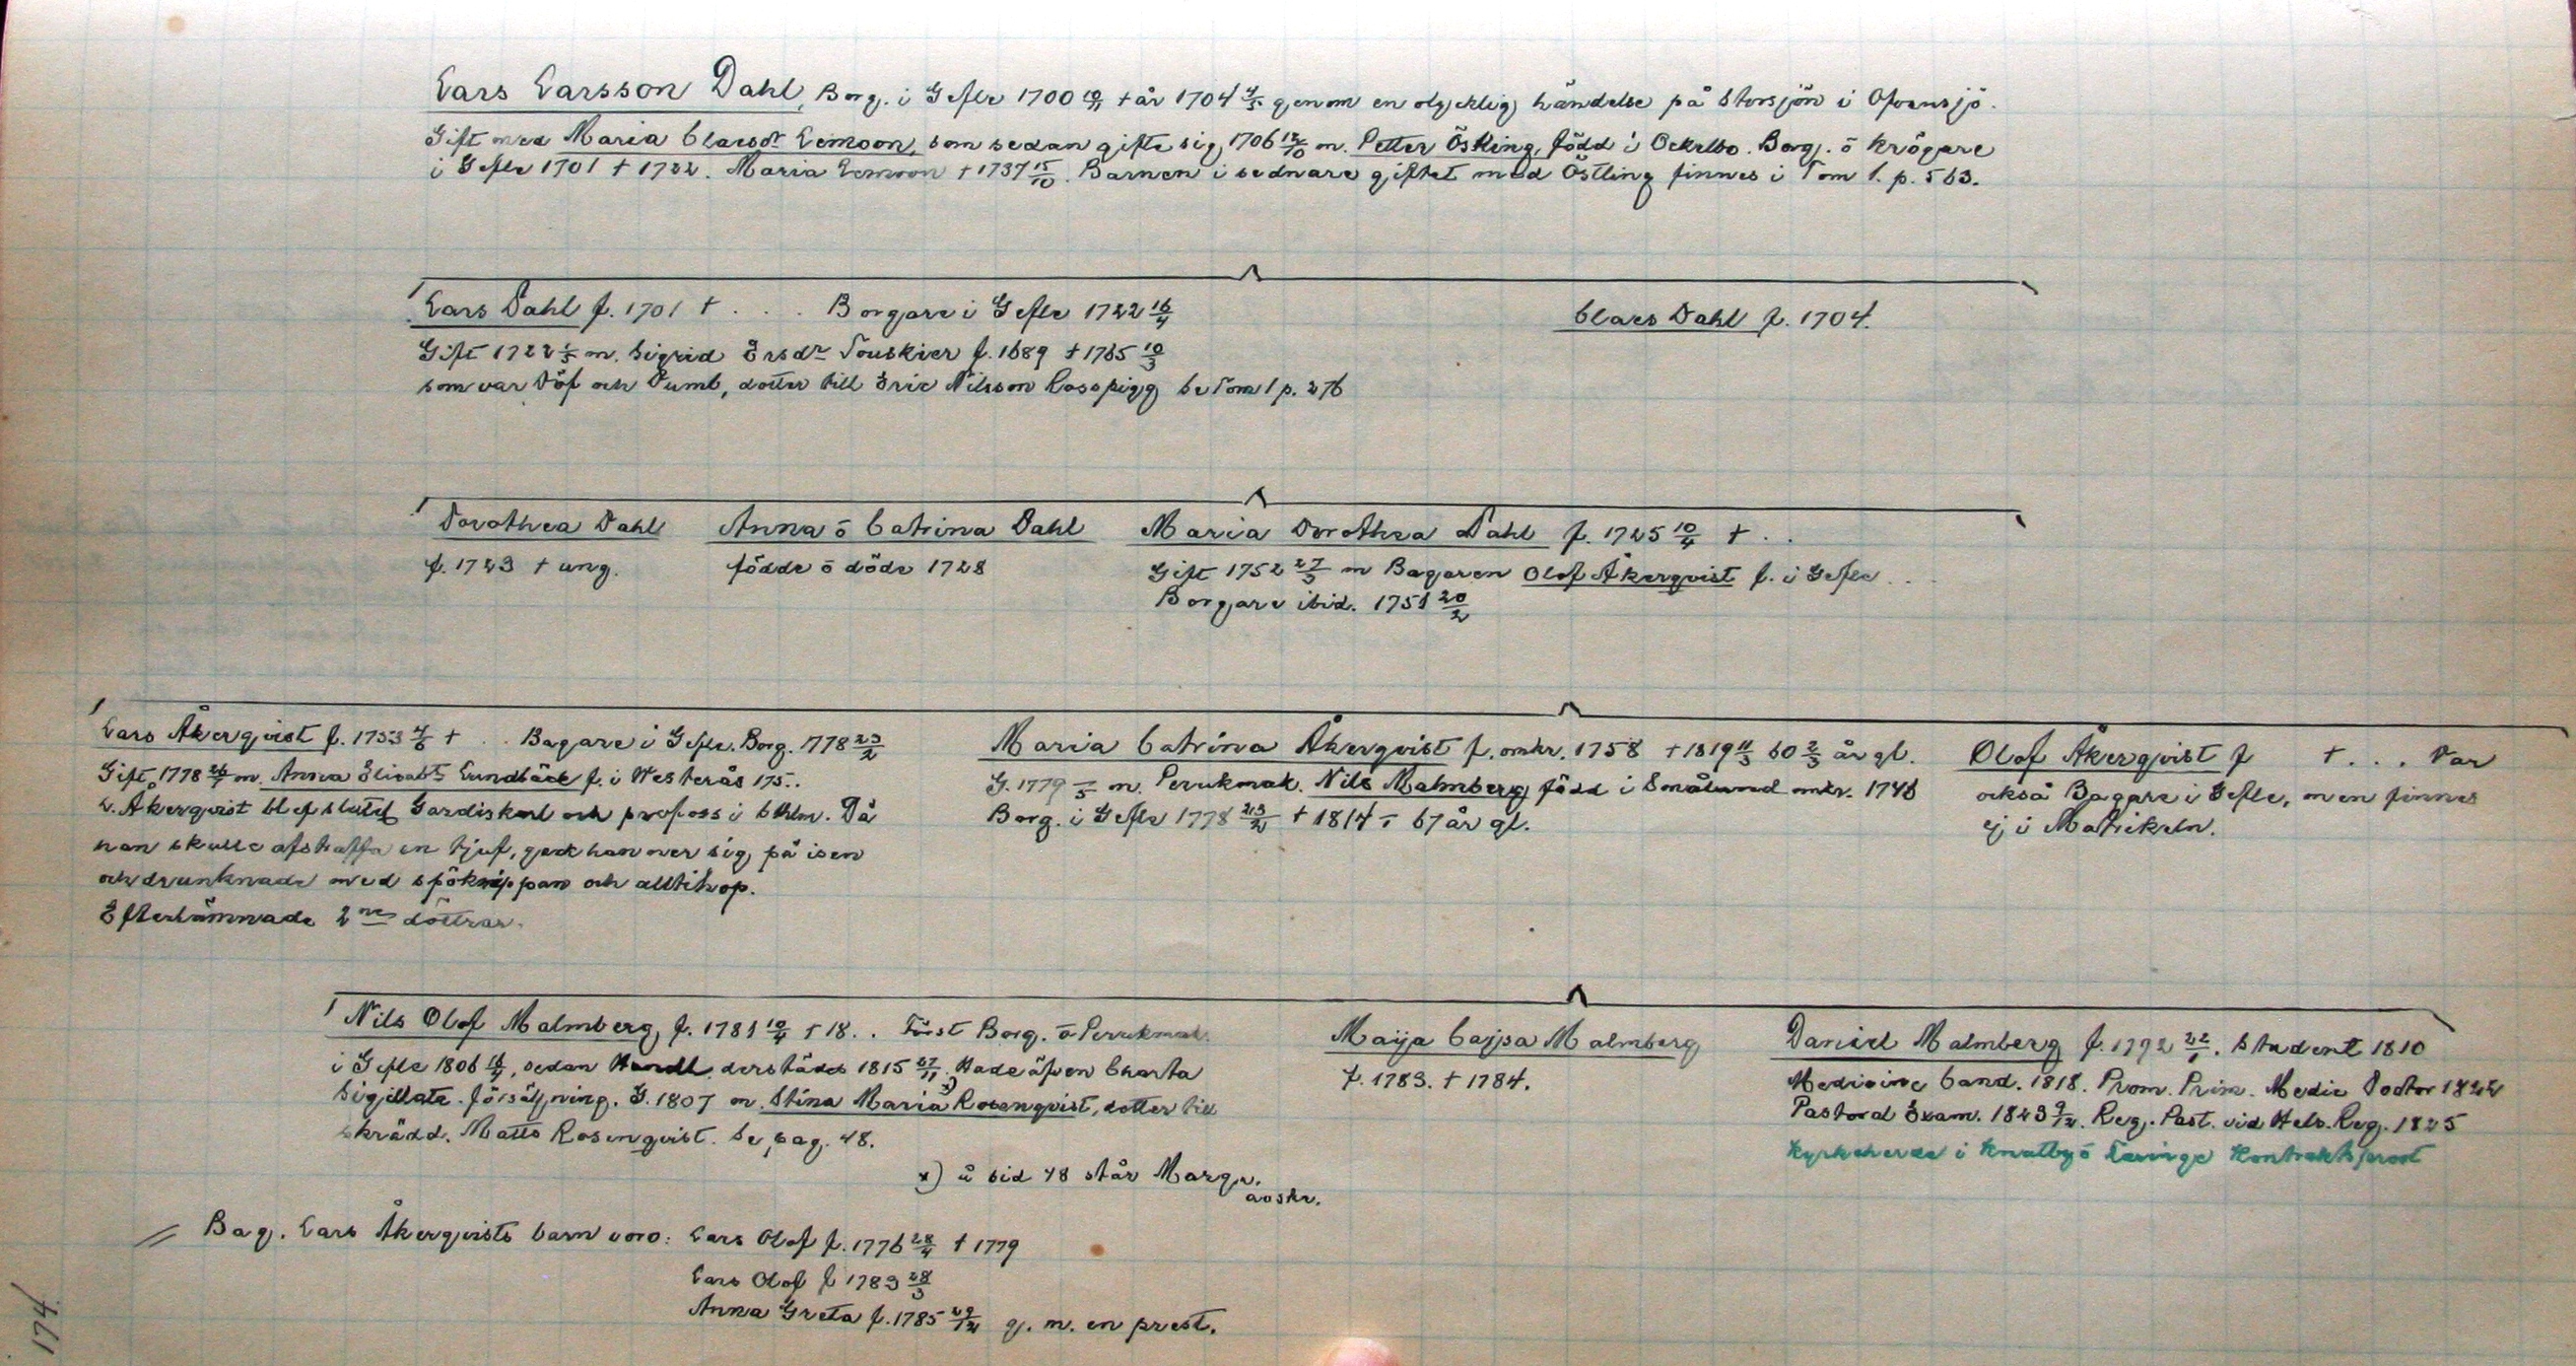 Lars Larsson Dahl, Borg. i Gefle 1700 10/11 † år 1704 4/5 genom en olycklig händelse på Storsjön i Ofvansjö.
Gift med Maria Claesdr Lemoon, som sedan gifte sig 1706 12/10 m. Petter Östling, född i Ockelbo. Borg. ō Krögare
i Gefle 1701 † 1722. Maria Lemoon † 1737 15/10. Barnen i sednare giftet med Östling finnes i Tom 1. p. 563.
Lars Dahl f. 1701 † . . . Borgare i Gefle 1722 16/4
Claes Dahl f. 1704.
Gift 1722 1/5 m. Sigrid Ersdr f. 1689 † 1765 10/3
som var Döf och Dumb, dotter till Eric Nilsson Rosspigg se Tom 1 p. 276
Dorothea Dahl
f. 1723 † ung.
Anna ō Catrina Dahl
födde ō döde 1728
Maria Dorothea Dahl f. 1725 10/4 † . .
Gift 1752 27/3 m Bagaren Olof Åkerqvist f. i Gefle . .
Borgare ibid. 1751 20/2
Lars Åkerqvist f. 1753 4/6 † . . Bagare i Gefle. Borg. 1778 23/2
Gift 1778 m. Anna Elisabt Lundbäck f. i Westerås 175..
L. Åkerqvist blef slutel Gardiskarl och profoss i Sthlm. Då
han skulle afstraffa en tjuf, gick han ner sig på isen
och drunknade med spöknippan och alltihop.
Efterlämnade 2ne döttrar.
Maria Catrina Åkerqvist f. omkr. 1758 † 1819 11/3 60 2/3 år gl.
G. 1779 m. Perukmak. Nils Malmberg född i Småland omkr. 1748
Borg. i Gefle 1778 23/2 † 1814 67 år gl.
Olof Åkerqvist f † . . . Var
också Bagare i Gefle, men finnes
ej i Matrikeln.
Nils Olof Malmberg, f. 1781 10/4 † 18. . Först Borg. ō Perukmak.
i Gefle 1806 14/4, sedan Handl. derstädes 1815 27/11. Hade äfven Charta
Sigillata försäljning. G. 1807 m. Stina Maria x) Rosenqvist, dotter till
skrädd. Matts Rosenqvist. Se pag. 48.
x) å sid 48 står Margr.
avskr.
Maija Cajsa Malmberg
f. 1783. † 1784.
Daniel Malmberg f. 1792 22/1. Student 1810
Medicine Cand. 1818. Prom. Prim. Medic Doctor 1822
Pastoral Exam. 1823 9/12. Reg. Past. vid Hels. Reg. 1825
Kyrkoherde i Knutby ō Faringe Kontraktsprost
Bag. Lars Åkerqvists barn voro: Lars Olof f. 1776 28/4 † 1779
Lars Olof f 1783 28/3
Anna Greta f. 1785 29/12 g. m. en prest.
174